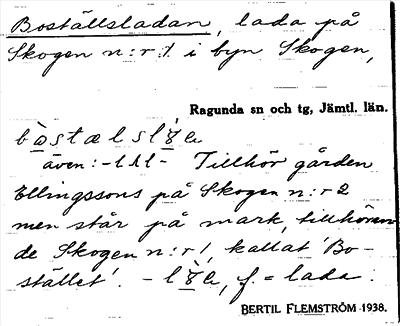 Boställsladan, lada på
Skogen n:r 1 i byn Skogen,
Ragunda sn och tg, Jämtl. län.
även: -l- Tillhör gården
Ellingssons på Skogen n:r 2
men står på mark, tillhöran-
de Skogen n:r 1, kallat 'Bo-
stället'. f. = lada.
BERTIL FLEMSTRÖM 1938.